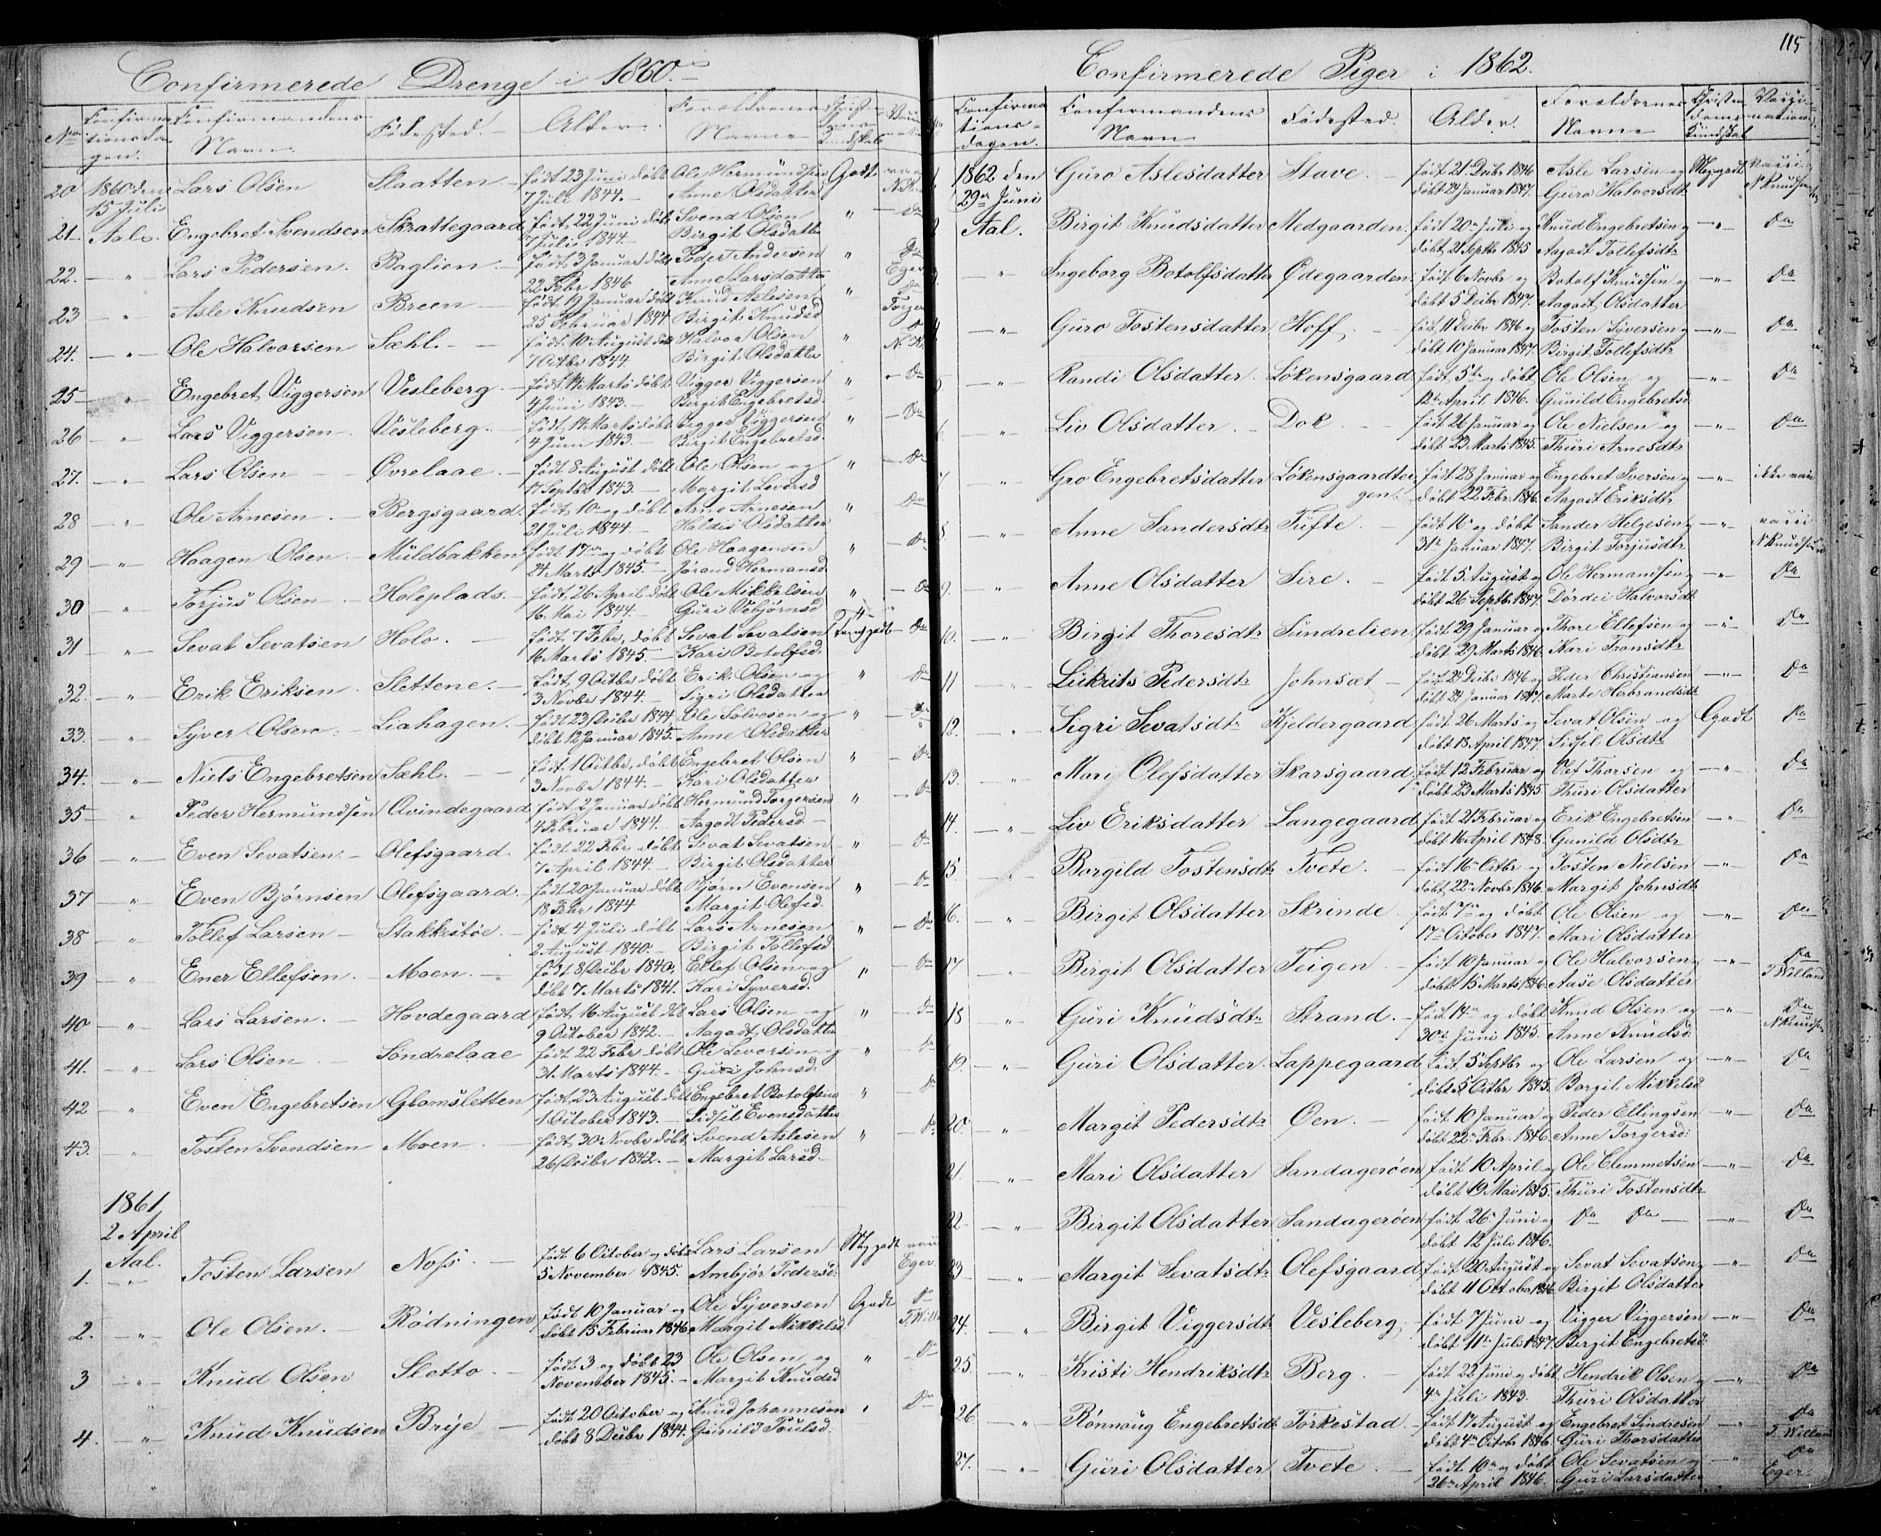 Confirmerede Drenge i 1860.
No Confirmationsdagen. Confirmandens Navn. Fødested. Alder. Forældrenes Navne Christendoms Kundskab
20 1860 den 15 Juli Lars Olsen Slaatten født 23 Juni døbt 7 Juli 1844. Ole Hermundsen Anne Olsdatter Godt
21 Aal. Engebret Svendsen Skrattegaard født, 22 Juni døbt 7 Julii 1844. Svend Olsen Birgit Olsdatter " Do
22. " Lars Pedersen. Raglien født, 3 Januar døbt 22 Febr 1846 Peder Andersen Anne Larsdatter " Do Eger
23 " Asle Knudsen Breen født 19 Januar døbt 25 Februar 1844 Knud Aslesen Birgit Knudsd "
24. " Ole Halvorsen Sæhl. født 10 August døbt 7 Octbr 1844. Halvor Olsen Birgit Olsdatter "
25 " Engebret Viggersen Vesleberg født 14 Marts døbt 4 Juni 1843. Vigger Viggersen Birgit Engebretsd. " Do
26 " Lars Viggersen Vesleberg. født, 14 Marts døbt 4 Juni 1843 Vigger Viggersen Birgit Engebretsd " Do
27. " Lars Olsen Øvrelaae. født 8 August døbt 17 Septbr 1843. Ole Olsen og Margit Leversd " Do
28 " Ole Arnesen Bergsgaard. født, 10 og døbt 21 Juli 1844. Arne Arnesen Haldis Olsdatter " Do
29 " Haagen Olsen Muldbakken født 17 og døbt 24 Marts 1845. Ole Haagensen Jørand Hermansd " Do
30 " Torjus Olsen Holeplads. født, 26 April døbt 16 Mai 1844. Ole Mikkelsen Guri Vebjørnsd " Do
31 " Sevat Sevatsen Holo. født, 7 Febr, døbt 16 Marts 1845. Sevat Sevatsen Kari Botolfsd. Do
32. " Erik Eriksen Slettene. født, 9 Octbr døbt 3 Novbr 1844. Erik Olsen og Sigri Olsdatter " Do
33. " Syver Olsen Liahagen. født 23 Decbr 1844 døbt 12 Januar 1845. Ole Solvesen og Anne Olsdatter " Do
34. " Niels Engebretsen Sæhl. født. 1 Octbr, døbt 3 Novbr 1844. Engebret Olsen Kari Olsdatter " Do
35 " Peder Hermundsen Qvindegaard født 2 Januar døbt 4 Februar 1844. Hermund Torgersen Aagodt Pedersd " Do
36 " Even Sevatsen. Olefsgaard født 22 Febr døbt 7 April 1844. Sevat Sevatsen Birgit Olsdatter " Do
37 " Even Bjørnsen Olefsgaard. født 20 Januar døbt 18 Febr 1844 Bjørn Evensen Margit Olefsd. " Do
38 " Tollef Larsen Stakkstøe. født 4 Juli døbt 2 August 1840. Lars Arnesen Birgit Tollefsd " Do
39 " Ener Ellefsen. Moen. født 8 Decbr 1840, døbt 7 Marts 1841. Ellef Olsen og Kari Syversd. " Do
40 " Lars Larsen. Hovdegaard født, 16 August dbt 9 October 1842. Lars Olsen og Aagodt Olsdatter " Do
41. " Lars Olsen Søndrelaae født 22 Febr døbt 31 Marts 1844. Ole Levorsen og Guri Johnsd " Do
42 " Even Engebretsen Glomsletten født, 23 August døbt 1 October 1843. Engebret Botolfsen Sidsel Evensdatter " Do
43. " Tosten Svendsen Moen født, 30 Novbr døbt 26 Decbr 1842. Svend Aslesen Margit Larsd. " Do
1861
2 April
Aal.
1. " Tosten Larsen Noss. født 6 October og døbt 5 November 1845. Lars Larsen Ambjør Pedersd. Mg godt Eger
2. " Ole Olsen. Rødningen født 10 Januar og døbt 15 Februar 1846 Ole Syversen Margit Mikkelsd. Godt Do
3 " Knud Olsen Sletto født 3 og døbt 23 November 1845. Ole Olsen og Margit Knudsd " Do
4. " Knud Knudsen Brye født 20 October og døbt 8 Decbr 1844. Knud Johannesen Gunild Poulsd. " Do
115
Confirmerede Piger i 1862.
Confirmationsdagen. Confirmandens Navn Fødested. Alder. Forældrenes Navne Christendoms Kundskab Vaccination
1 1862 den 29de Juni Guro Aslesdatter Stave. født 21 Decbr 1846 døbt 24 Januar 1847. Asle Larsen og Guro Halvorsdtr Meggodt vacci N Knudsen
2 Aal. Birgit Knudsdatter Medgaarden. født 20 Juli og døbt 21 Septbr 1845 Knud Engebretsen og Aagodt Tollefsdtr " Do
3. " Ingeborg Botolfsdatter Ødegaarden født 6 Novbr og døbt 5 Decbr 1847. Botolf Knudsen og Aagodt Olsdatter " Do
4. " Guro Tostensdatter Hoff. født 11 Decbr 1846 og døbt 10 Januar 1847. Tosten Syversen og Birgit Tollefsdtr " Do
5 " Randi Olsdatter. Løkensgaard født, 5te og døbt 12te April 1846. Ole Olsen og Gunild Engebretsd. " Do
6 " Liv Olsdatter. Dok. født 26 Januar og døbt 23 Marts 1845. Ole Nielsen og Thuri Arnesdtr " Do
7 " Gro Engebretsdatter Løkensgaardteigen født 28 Januar og døbt 22 Febr. 1846. Engebret Iversen og Aagodt Eriksdtr " ikke vacc
8 " Anne Sandersdtr Tufte. født 16 og døbt 31te Januar 1847. Sander Helgesen og Birgit Torjusdtr " vacci N Knudsen
9. " Anne Olsdatter Sire. født 5 August og døbt 26 Septbr 1847. Ole Hermansen og Dordei Halvorsdtr " Do
10. " Birgit Thoresdtr Sundrelien født 29 Januar og døbt 29 Marts 1846. Thore Ellefsen og Kari Tronsdtr " Do
11 " Lukrits Pedersdtr Johnsæt født 24 Decbr 1846 og døbt 24 Januar 1847. Peder Christiansen Marte Habrandsdtr " Do
12. " Sigri Sevatsdtr Kjeldergaard født 26 Marts og døbt 18 April 1847. Sevat Olsen og Sidsel Olsdtr Godt Do
13. " Mari Olefsdatter Skarsgaard født 12 Februar og døbt 23 Marts 1845 Olef Thorsen og Thuri Olsdatter " Do
14. " Liv Eriksdatter Langegaard født 21 Februar og døbt 16 April 1848. Erik Engebretsen Gunild Olsdtr " Do
15 " Borgild Tostensdtr Tvete. født 16 Octbr og døbt, 22 Novbr 1846. Tosten Nielsen Margit Johnsdtr " Do
16. " Birgit Olsdatter Skrinde. født 7 og døbt 17 October 1847. Ole Olsen og Mari Olsdatter " Do
17 " Birgit Olsdatter Teigen født 10 Januar og døbt 15 Marts 1846. Ole Halvorsen og Aase Olsdatter " Do T Willand
18 " Guri Knudsdtr Strand. født 14 og døbt 30te Juni 1845. Knud Olsen og Anne Knudsd. " Do N Knudsen
19. " Guri Olsdatter. Lappegaard født 5 Septbr og døbt 5 Octbr 1845. Ole Larsen og Borgil Mikkelsd " Do
20. " Margit Pedersdtr Øen. født 10 Januar og døbt 22 Febr. 1846. Peder Ellingsen Anne Torgersd. " Do
21. " Mari Olsdatter Sandagerøen født 10 April og døbt 19 Mai 1845. Ole Clemmetsen Thuri Tostensdtr " Do
22. " Birgit Olsdatter Sandagerøen født 26 Juni og døbt 12 Juli 1846. Do Do " Do
23 " Margit Sevatsdtr Olefsgaard født 20 August og døbt 11 October 1846. Sevat Sevatsen og Birgit Olsdatter " Do
24. " Birgit Viggersdtr Vesleberg. født 7 Juni og døbt 11te Juli 1847. Vigger Viggersen Birgit Engebretsd. " Do
25. " Kristi Hendriksdtr Berg. født 22 Juni og døbt 4de Juli 1843. Hendrik Olsen og Thuri Olsdatter " Do
26. " Rønnoug Engebretsdtr Torkestad. født 17 August og døbt 4 Octobr 1846. Engebret Sindresen Guri Thorsdatter " Do T. Willand
27. " Guri Olsdatter Tvete født 10 og døbt 26 April 1846. Ole Sevatsen og Guri Larsdatter " Do Eger.